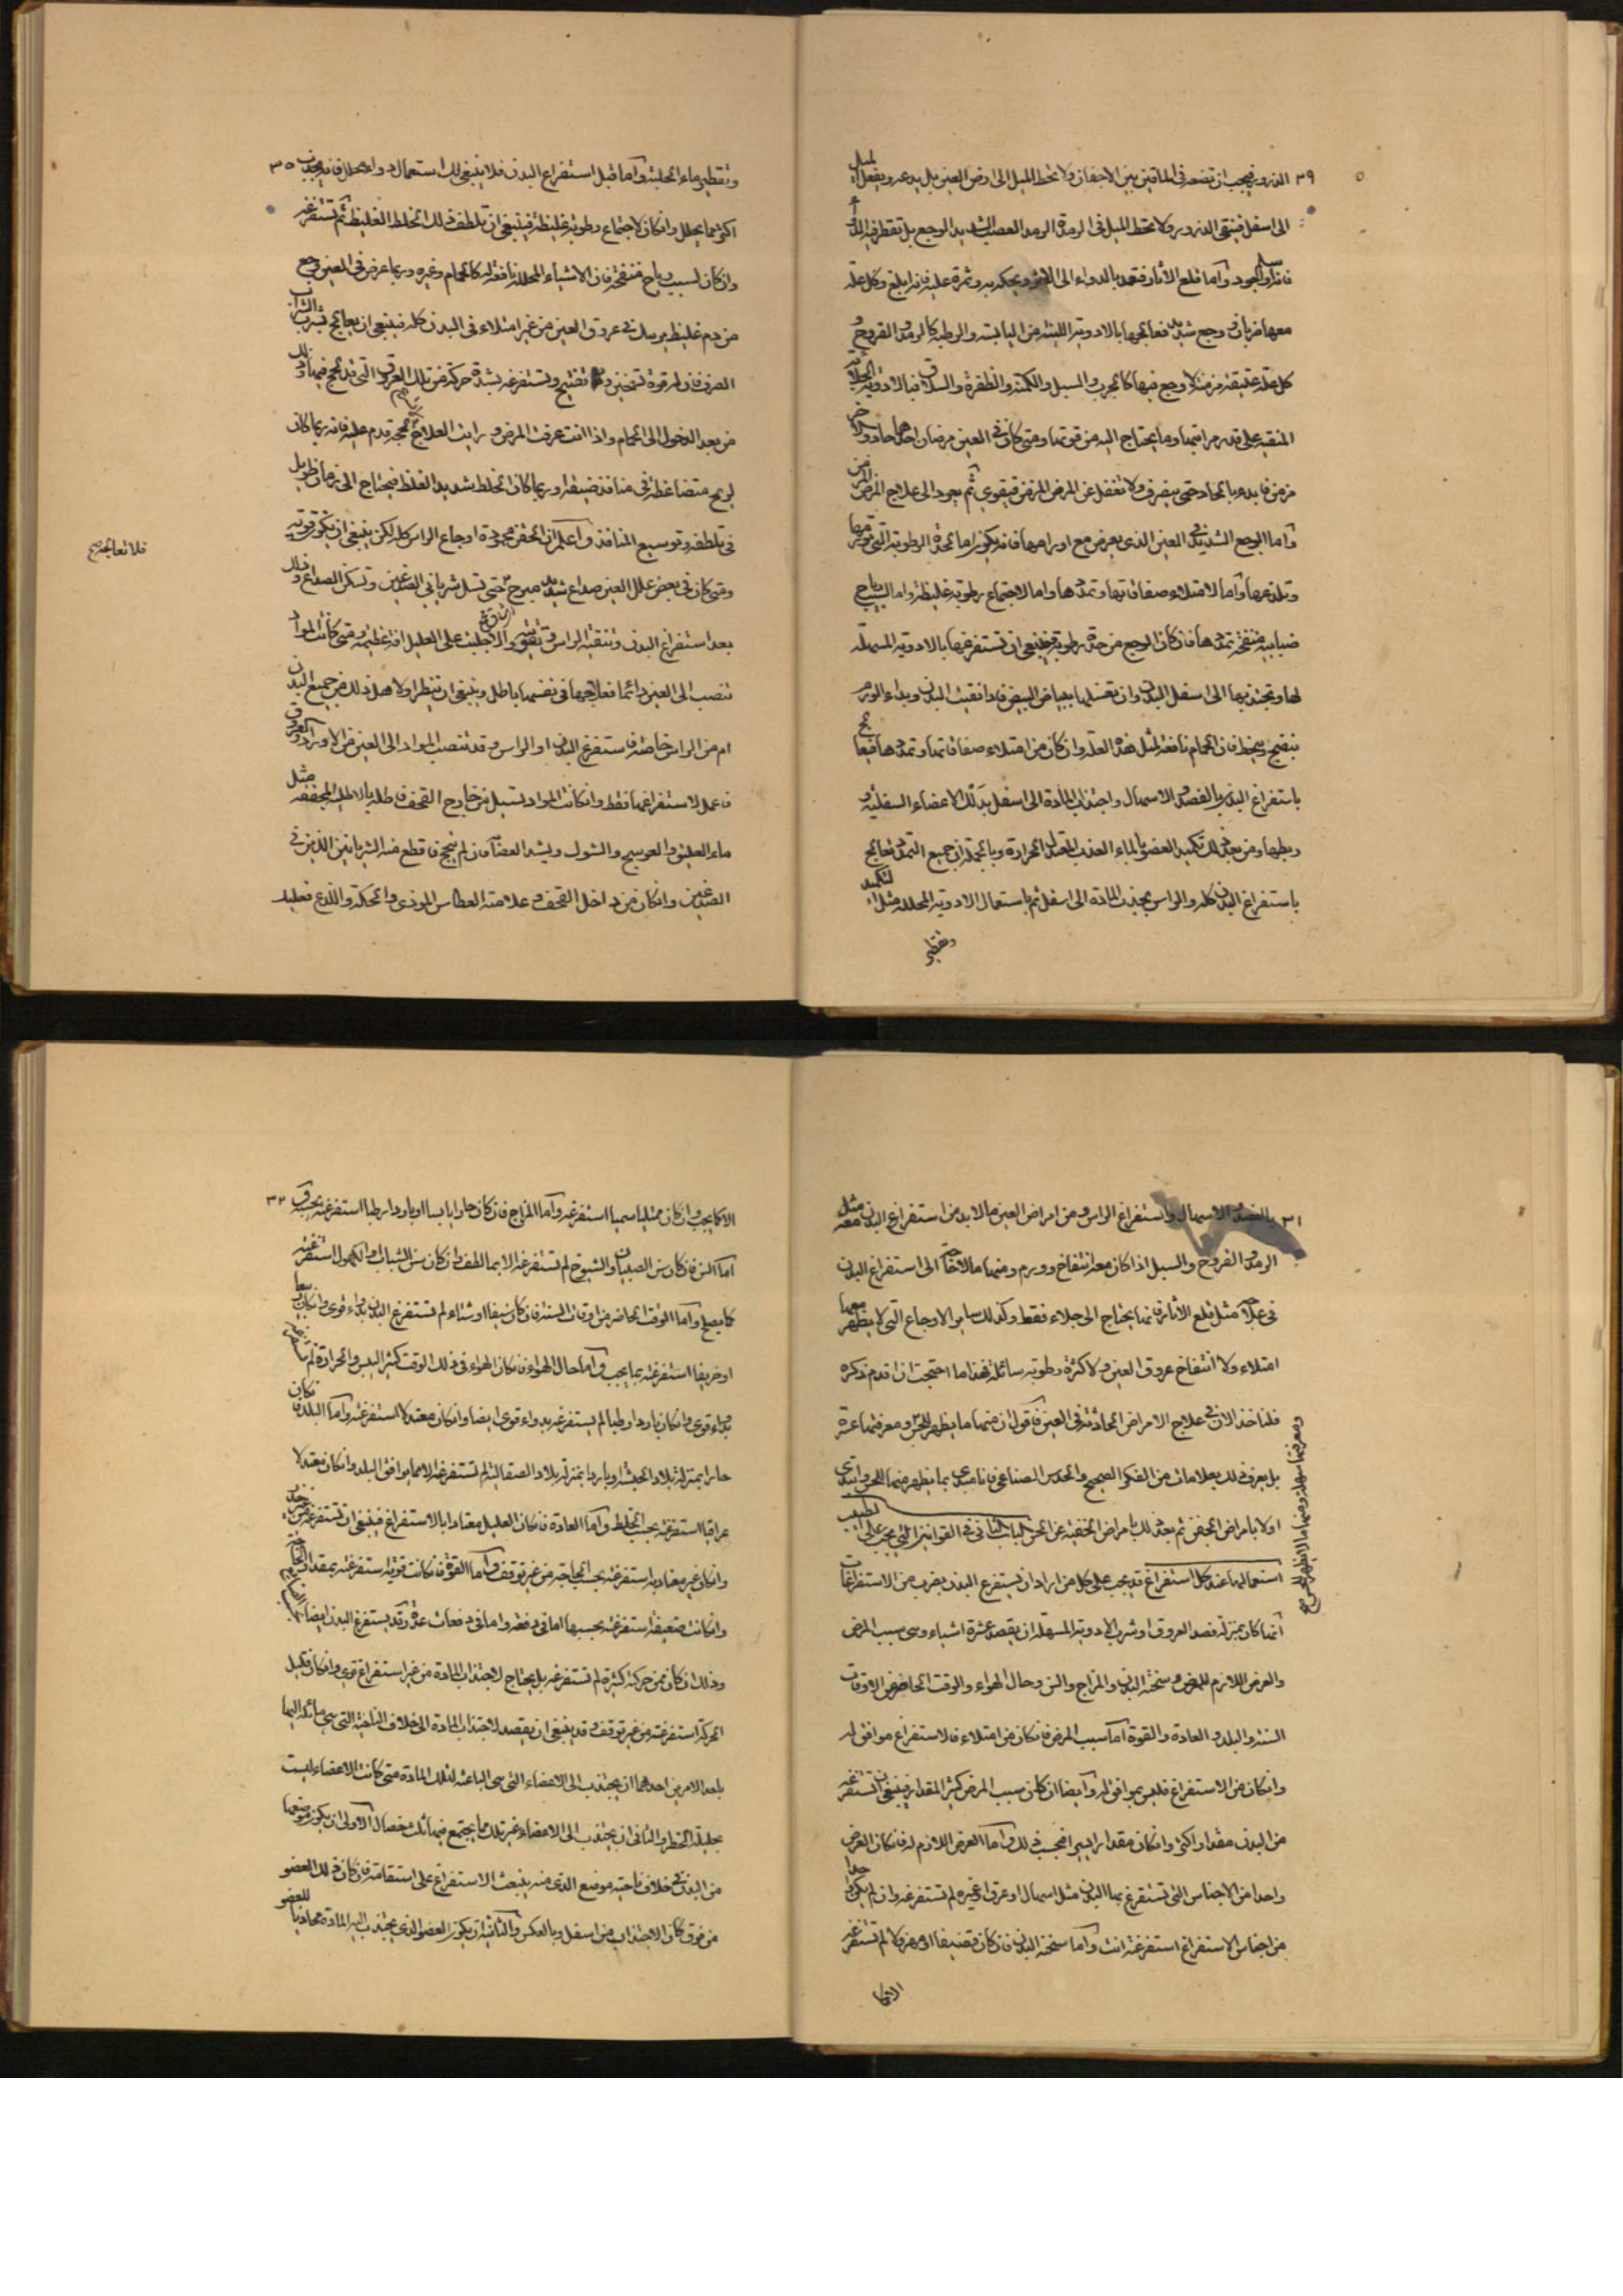 ٣٩ الذرور فيجب ان تضعه في الماقين بين الاجفان ولا تحط الميل الى ارض العين بل يدعه ويفعل الميل
الى اسفل فينقى الذرور ولا تحط الميل في الرمد الصعب الشديد الوجع بل تقطر فيه
فانه اجود واما قلع الاثار فتعمد بالدواء الى الاثر ويحكه به وتمره عليه فانه ابلغ وكل علة
معها ضربان ووجع شديد فعالجها بالادوية اللينة من اليابسة والرطبة كالرمد والقروح و
كل علة عتيقة مزمنة لا وجع فيها كالجرب والسبل والكمنة والظفرة والسلاق فبالادوية
المنقية على قدر مراتبها وما يحتاج اليه من قوتها ومتى كان في العين مرضان احدهما حاد والاخر
مزمن فابدء بالحاد حتى ينصرف ولا تغفل عن المرض المزمن فيقوى ثم يعود الى علاج المرض المزمن
واما الوجع الشديد في العين الذي يعرض مع اورامها فانه يكون اما لحدة الرطوبة التي تورمها
وتلذعها واما لامتلاء صفاقاتها وتمددها واما لاجتماع رطوبة غليظة واما لسبب رياح
ضبابية منفخة تمددها فان كان الوجع من حدة رطوبة فينبغي ان تستفرغها بالادوية المسهلة
لها وتجتذبها الى اسفل البدن وان تغسلها ببياض البيض فاذا نقيت البدن وبداء الورم
ينضج وينحط فان الحمام نافعة لمثل هذه العلة وان كان من امتلاء صفاقاتها وتمددها فيعالج
باستفراغ البدن بالفصد والاسهال واجتذاب المادة الى اسفل بدلك الاعضاء السفلية و
ربطها ومن بعد ذلك تكميد العضو بالماء العذب المعتدل الحرارة وبالجملة ان جميع التمدد تعالج
باستفراغ البدن كله والراس بجذب المادة الى اسفل ثم باستعمال الادوية المحللة مثل التكميد
وتقطير
وتقطير ماء الحلبة واما قبل استفراغ البدن فلا ينبغي لك استعمال دواء محلل فانه يجذب ٣٥
اكثر مما يحلل وان كان لاجتماع رطوبة غليظة فينبغي ان تلطف ذلك الخلط الغليظ ثم تستفرغه
وان كان لسبب رياح منفخة فان الاشياء المحللة نافعة له كالحمام وغيره وربما عرض في العين وجع
من دم غليظ يرسل في عروق العين من غير امتلاء في البدن كله فينبغي ان يعالج بشرب الشراب
الصرف فان له قوة تسخين وتفتيح وتستفرغه بشدة حركة من تلك العروق التي قد لحج فيها وذلك
من بعد الدخول الى الحمام واذا انت عرفت المرض ورايت العلاج فلا تقدم عليه فانه ربما كان
لريح متضاغطة في منافذ ضيقة وربما كان الخلط شديد الغلظ فيحتاج الى زمان طويل
في تلطفه وتوسيع المنافذ واعلم ان الحقن محمودة اوجاع الراس كله لكن ينبغي ان يكون قوته
ومتى كان في بعض علل العين صداع شديد مبرح حتى تسل شرياني الصدغين وتسكن الصداع وذلك
بعد استفراغ البدن وتنقية الراس وتقويته والا جلبت على العليل افة عظيمة ومتى كانت المواد
تنصب الى العين دائما فعلاجها في نفسها باطل وينبغي ان تنظر اولا هل ذلك من جميع البدن
ام من الراس خاصة فاستفرغ البدن او الراس وقد تنصب المواد الى العين من الاوراد والعروق
فاعمل لاستفراغها فقط وان كانت المواد تسيل من خارج القحف فاطله بالاطلية المجففة مثل
ماء العليق والعوسج والشوك ويشد العضا فان لم ينجح فاقطع هذه الشريانين الذين في
الصدغين وان كان من داخل القحف وعلامته العطاس الموذى والحكة واللذع فعليك
فلا تعالجه صح
٣١ بالفصد والاسهال واستفراغ الراس ومن امراض العين ما لا بد من استفراغ البدن معه مثل
الرمد والقروح والسبل اذا كان معه انتفاخ وورم ومنها ما لا تحتاج الى استفراغ البدن
في علاجه مثل قلع الاثار فانما يحتاج الى جلاء فقط وكذلك ساير الاوجاع التي لا يظهر معها
امتلاء ولا انتفاخ عروق العين ولا كثرة رطوبة سائلة فهذا ما احتجت ان اقدم ذكره
فلناخذ الان في علاج الامراض الحادثة في العين فاقول ان منها ما يظهر للحس ومعرفتها عسرة
بل يعرف ذلك بعلامات من الفكر الصحيح والحدس الصناعي فانا مبدى بما يظهر منها للحس وابتدى
اولا بامراض الجفن ثم بعد ذلك بامراض الخفية عن الحس الباب الثاني في القوانين التي يجب على الطبيب
استعمالها عند كل استفراغ قد يجب على كل من اراد ان يستفرغ البدن بضرب من الاستفراغات
ايما كان بمنزلة فصد العروق او شرب الادوية المسهلة ان يقصد عشرة اشياء وهي سبب المرض
والعرض اللازم للمرض وسخنة البدن والمزاج والسن وحال الهواء والوقت الحاضر من الاوقات
السنة والبلد والعادة والقوة اما سبب المرض فان كان من امتلاء فالاستفراغ موافق له
وان كان من الاستفراغ فليس بموافق له وايضا ان كان سبب المرض كثير المقدار فينبغي ان تستفرغ
من البدن مقدارا اكثر وان كان مقدارا يسيرا فبحسب ذلك واما العرض اللازم له فان كان العرض
واحدا من الاجناس التي تستفرغ بها البدن مثل اسهال او عرق او غيره لم تستفرغه وان لم يكن واحدا
من اجناس الاستفراغ استفرغته انت واما سخنة البدن فان كان قضيفا او مهزولا لم تستفرغه
ومعرفتها سهلة ومنها ما لا يظهر للحس صح
الا كما يجب وان كان ممتليا سمينا استفرغه واما المزاج فان كان حارا يابسا او باردا رطبا استفرغته بحسب ٣٢
اما السن فان كان سن الصبيان والشيوخ لم تستفرغه الا بما لطف وان كان سن الشباب او الكهول استفرغته
كما يصلح واما الوقت الحاضر من اوقات السنة فان كان صيفا او شتاء لم تستفرغ البدن بدواء قوى وان كان ربيعا
او خريفا استفرغته بما يجب واما حال الهواء فان كان الهواء في ذلك الوقت كثير اليبس والحرارة لم
بدواء قوى وان كان باردا رطبا لم يستفرغه بدواء قوى ايضا وان كان معتدلا استفرغته واما البلد فان كان
حارا بمنزلة بلاد الحبشة او باردا بمنزلة بلاد الصقالبة لم تستفرغه الا مما يوافق البلد وان كان معتدلا
عراقيا استفرغته بحسب الخلط واما العادة فان كان العليل معتادا بالاستفراغ فينبغي ان تستفرغه
وان كان غير معتاد به استفرغته بحسب الحاجة من غير توقف واما القوة فان كانت قوية استفرغته بمقدار الحاجة
وان كانت ضعيفة استفرغته بحسبها اما في دفعة واما في دفعات عدة وقد يستفرغ البدن ايضا
وذلك ان كان ممن حركته كثيرة لم تستفرغه بل يحتاج لاجتذاب المادة من غير استفراغ قوى وان كان قليل
الحركة استفرغته من غير توقف وقد ينبغي ان يقصد لاجتذاب المادة الى خلاف الناحية التي هي مائلة اليها
باحد الامرين احدهما ان يجتذب الى الاعضاء التي هي الباعثة لتلك المادة متى كانت الاعضاء ليست
بجليلة الخطر والثاني ان يجتذب الى الاعضاء غير تلك مما يجتمع فيها ثلث خصال الاولى ان يكون موضعها
من البدن في خلاف ناحية موضع الذي منه ينبعث الاستفراغ على استقامة فان كان ذلك العضو
من فوق كان الاجتذاب من اسفل وبالعكس والثانية ان يكون العضو الذي يجتذب اليه المادة محاذيا للعضو